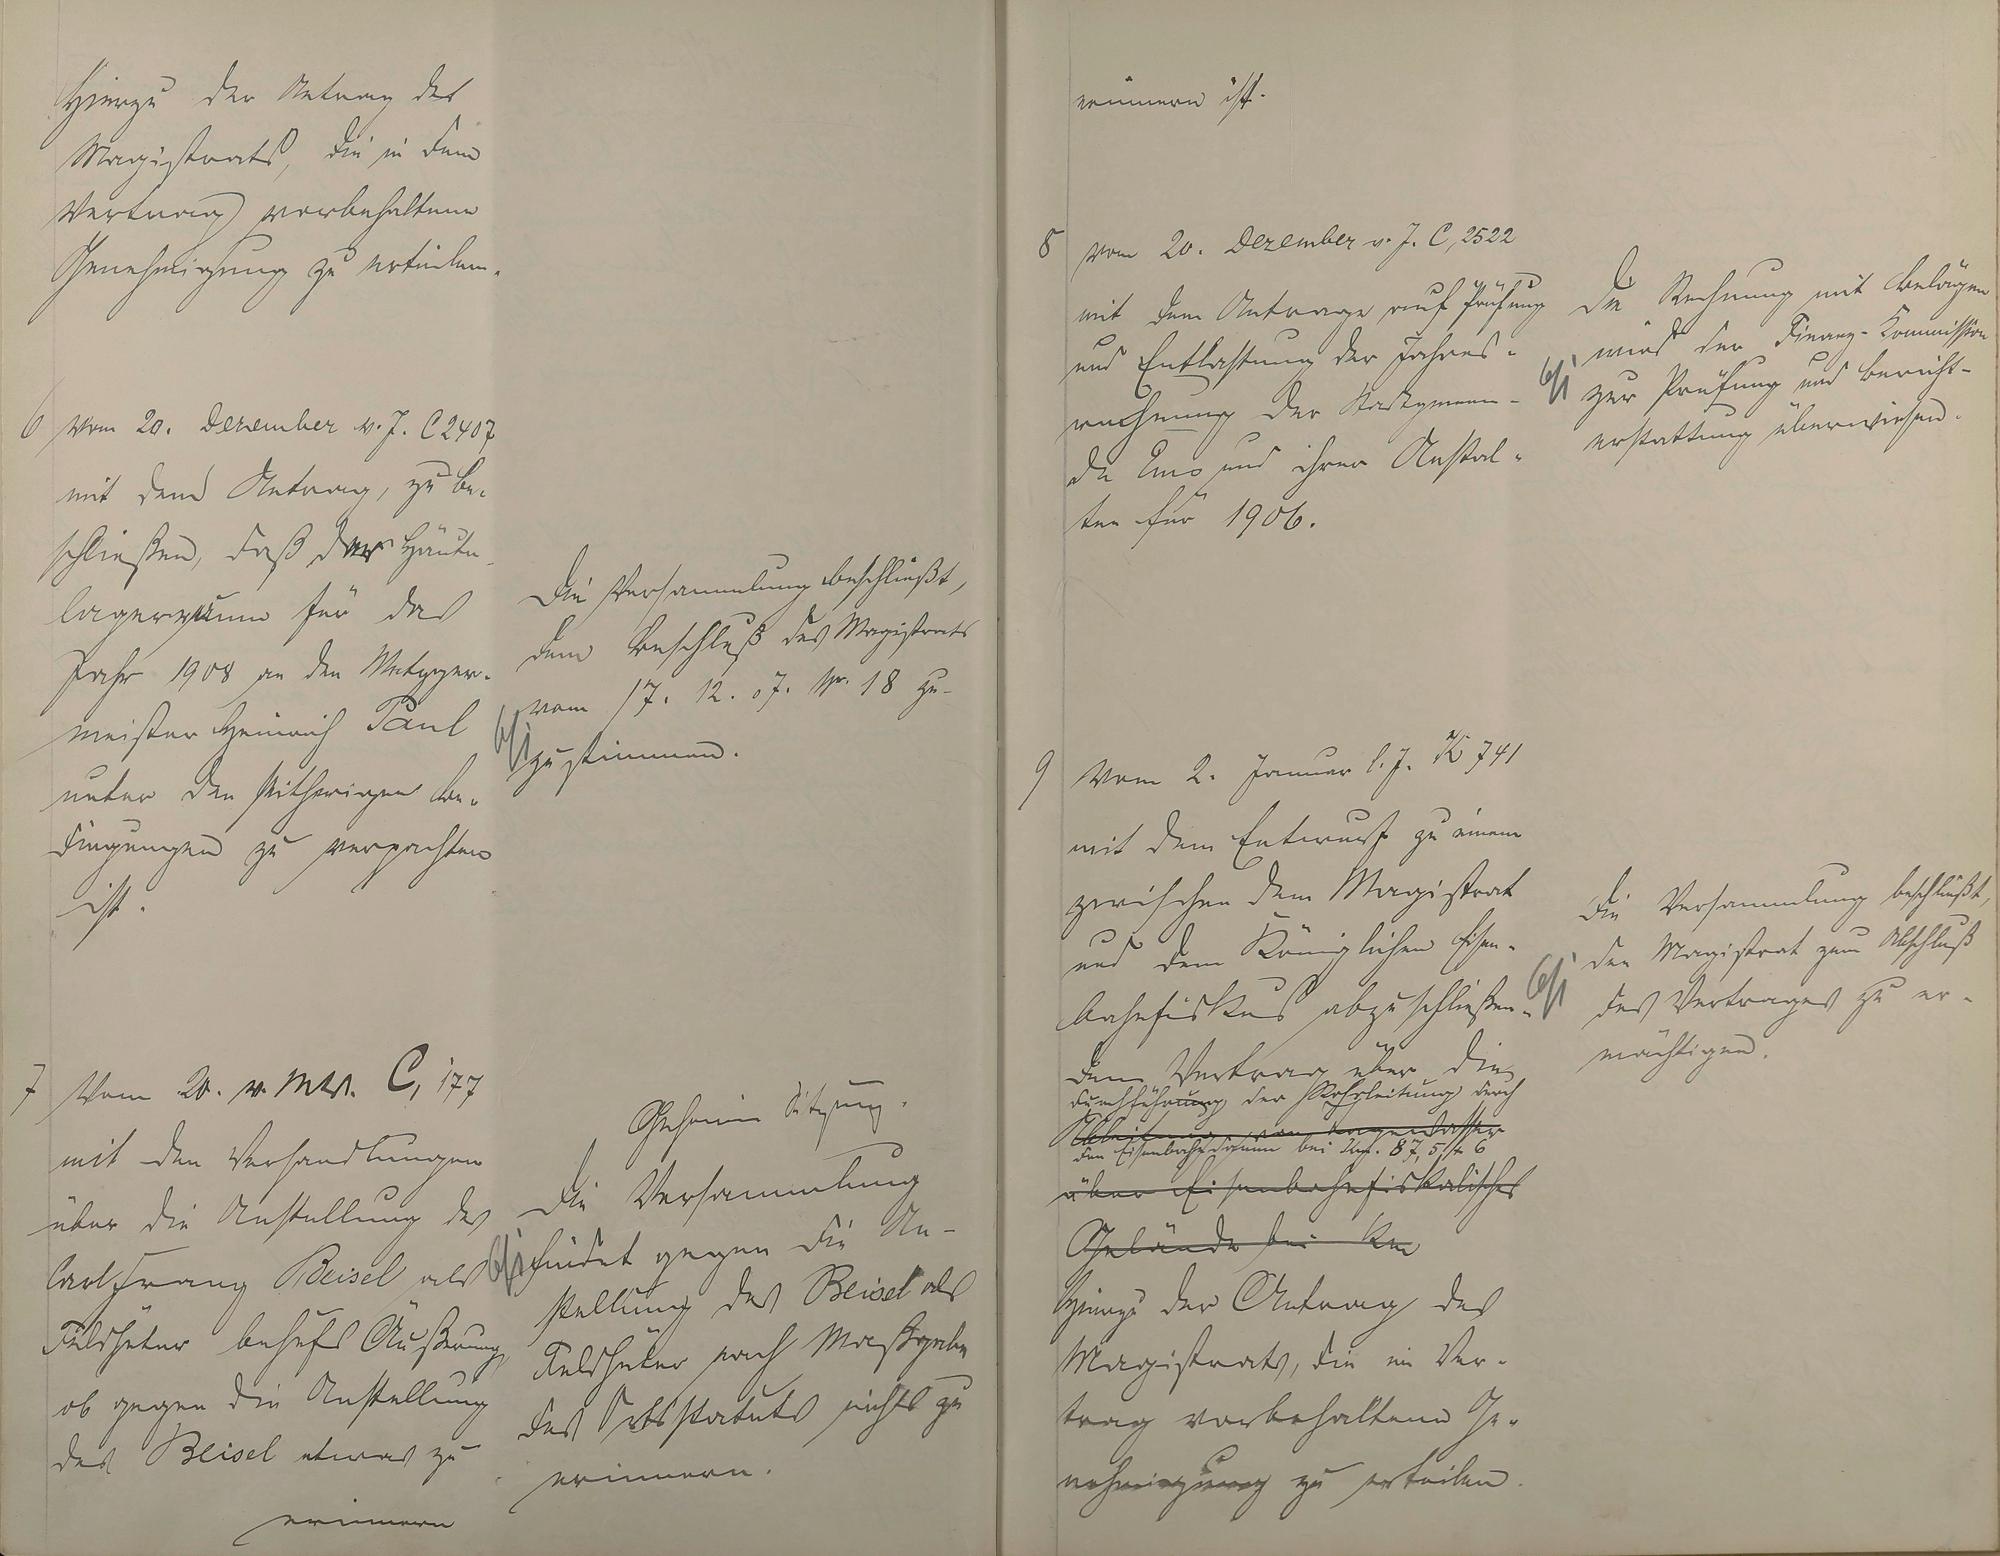 Hierzu der Antrag des
Magistrats, die in dem
Vertrag vorbehaltene
Genehmigung zu erteilen.
6 Vom 20. Dezember v. J. C 2407
mit dem Antrag, zu be-
schließen, daß der Häute-
lagerraum für das
Jahr 1908 an den Metzger-
meister Heinrich Paul
unter den seitherigen Be-
dingungen zu verpachten
ist.
Die Versammlung beschließt,
dem Beschluß des Magistrats
vom 17. 12. 07. Nr. 18 zu-
zustimmen.
7 Vom 20. v. Mts. C, 177
mit den Verhandlungen
über die Anstellung des
Carl Franz Beisel als
Feldhüter behufs Äußerung,
ob gegen die Anstellung
des Beisel etwas zu
erinnern
Geheime Sitzung.
Die Versammlung
findet gegen die An-
stellung des Beisel als
Feldhüter nach Maßgabe
des Ortsstatuts nichts zu
erinnern.
erinnern ist.
8 Vom 20. Dezember v. J. C, 2522
mit dem Antrage auf Prüfung
und Entlastung der Jahres-
rechnung der Stadtgemein-
de Ems und ihrer Anstal-
ten für 1906.
Die Rechnung mit Belägen
wird der Finanz-Kommission
zur Prüfung und Bericht-
erstattung überwiesen.
9 Vom 2. Januar l. J. K 741
mit dem Entwurf zu einem
zwischen dem Magistrat
und dem Königlichen Eisen-
bahnfiskus abzuschließen-
dem Vertrag über die
Durchführung der Rohrleitung durch
Ableitung von Tagewasser
den Eisenbahndamm bei Km. 87,5 + 6
über Eisenbahnfiskalisches
Gelände bei Km
Hierzu der Antrag des
Magistrats, die im Ver-
trag vorbehaltene Ge-
nehmigung zu erteilen.
Die Versammlung beschließt,
den Magistrat zum Abschluß
des Vertrages zu er-
mächtigen.